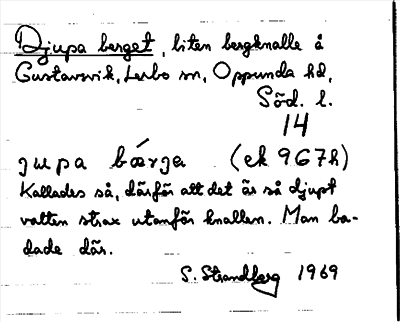 Djupa berget, liten bergknalle å
Gustavsvik, Lerbo sn, Oppunda hd,
Söd. l.
14
jupa bærja (ek 967h)
Kallades så, därför att det är så djupt
vatten strax utanför knallen. Man ba-
dade där.
S. Strandberg 1969